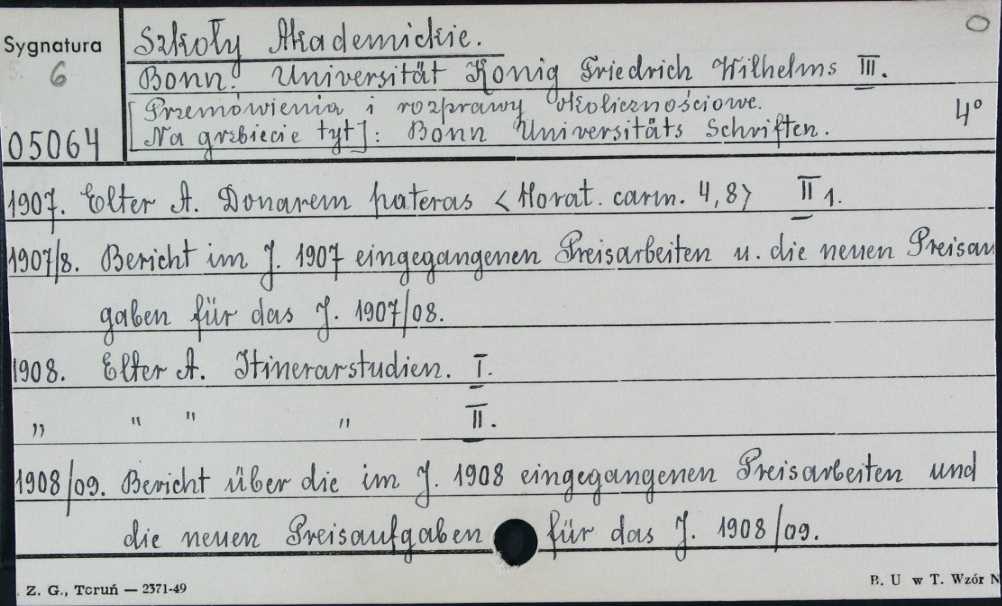 Sygnatura
6
05064
Szkoły Akademickie.
Bonn. Universität König Friedrich Wilhelms III.
[Przemówienia i rozprawy okolicznościowe.
Na grzbiecie tyt]: Bonn Universitäts Schriften.
4°
1907. Elter A. Donarem pateras <Horat. carm. 4,8> II 1.
1907/8. Bericht im J. 1907 eingegangenen Preisarbeiten u. die neuen Preisau
gaben für das J. 1907/08.
1908. Elter A. Itinerarstudien. I.
„ " " " II.
1908/09. Bericht über die im J. 1908 eingegangenen Preisarbeiten und
die neuen Preisaufgaben für das J. 1908/09.
Z. G., Toruń — 2371-49
B. U w T. Wzór N